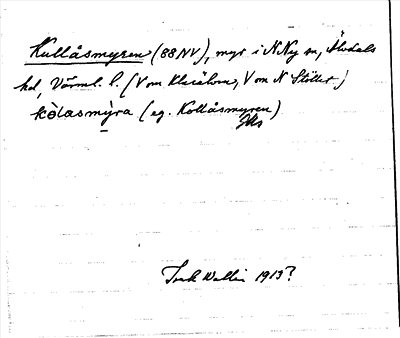 Kullåsmyren (88NV), myr i N Ny sn, Älvdals
hd, Värml. l. (V om Klarälven, V om N Stöllet)
kòlasmỳra (eg. Kollåsmyren)
Wallin 1913?